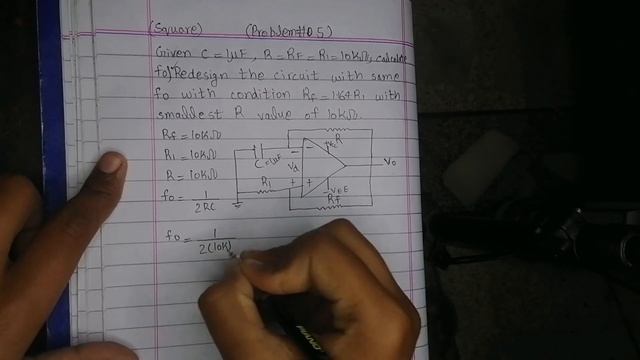 (Square) (Problem#05)
Given C = 1μF, R = RF = R1 = 10KΩ, calculate
fo) Redesign the circuit with same
fo with condition RF = 1.164R1 with
smallest R value of 10KΩ.
Rf = 10KΩ
R1 = 10KΩ
R = 10KΩ
fo = 1
2RC
fo = 1
2(10K)
R
+Vcc
C=1μF
Vd
Vo
R1
-VEE
Rf
PIANO